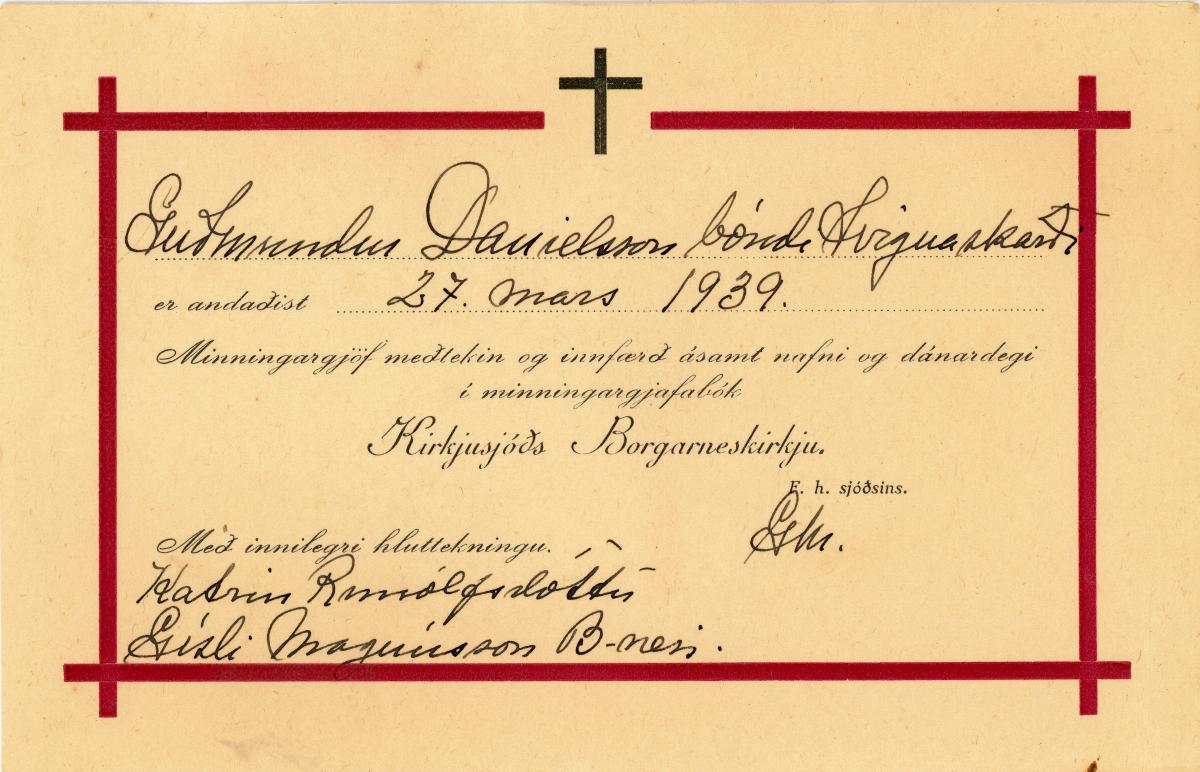 Guðmundur Danielsson bóndi Svignaskarði
er andaðist 27. mars 1939.
Minningargjöf meðtekin og innfærð ásamt nafni og dánardegi
í minningargjafabók
Kirkjusjóðs Borgarneskirkju.
F. h. sjóðsins.
GM.
Með innilegri hluttekningu.
Katrin Runólfsdóttir
Gísli Magnússon B-nesi.